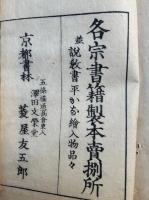 各宗書籍製本賣捌所
並 説教書平かな繪入物品々
五條橋通高倉東入
京都書林 澤田文榮堂
菱屋友五郎